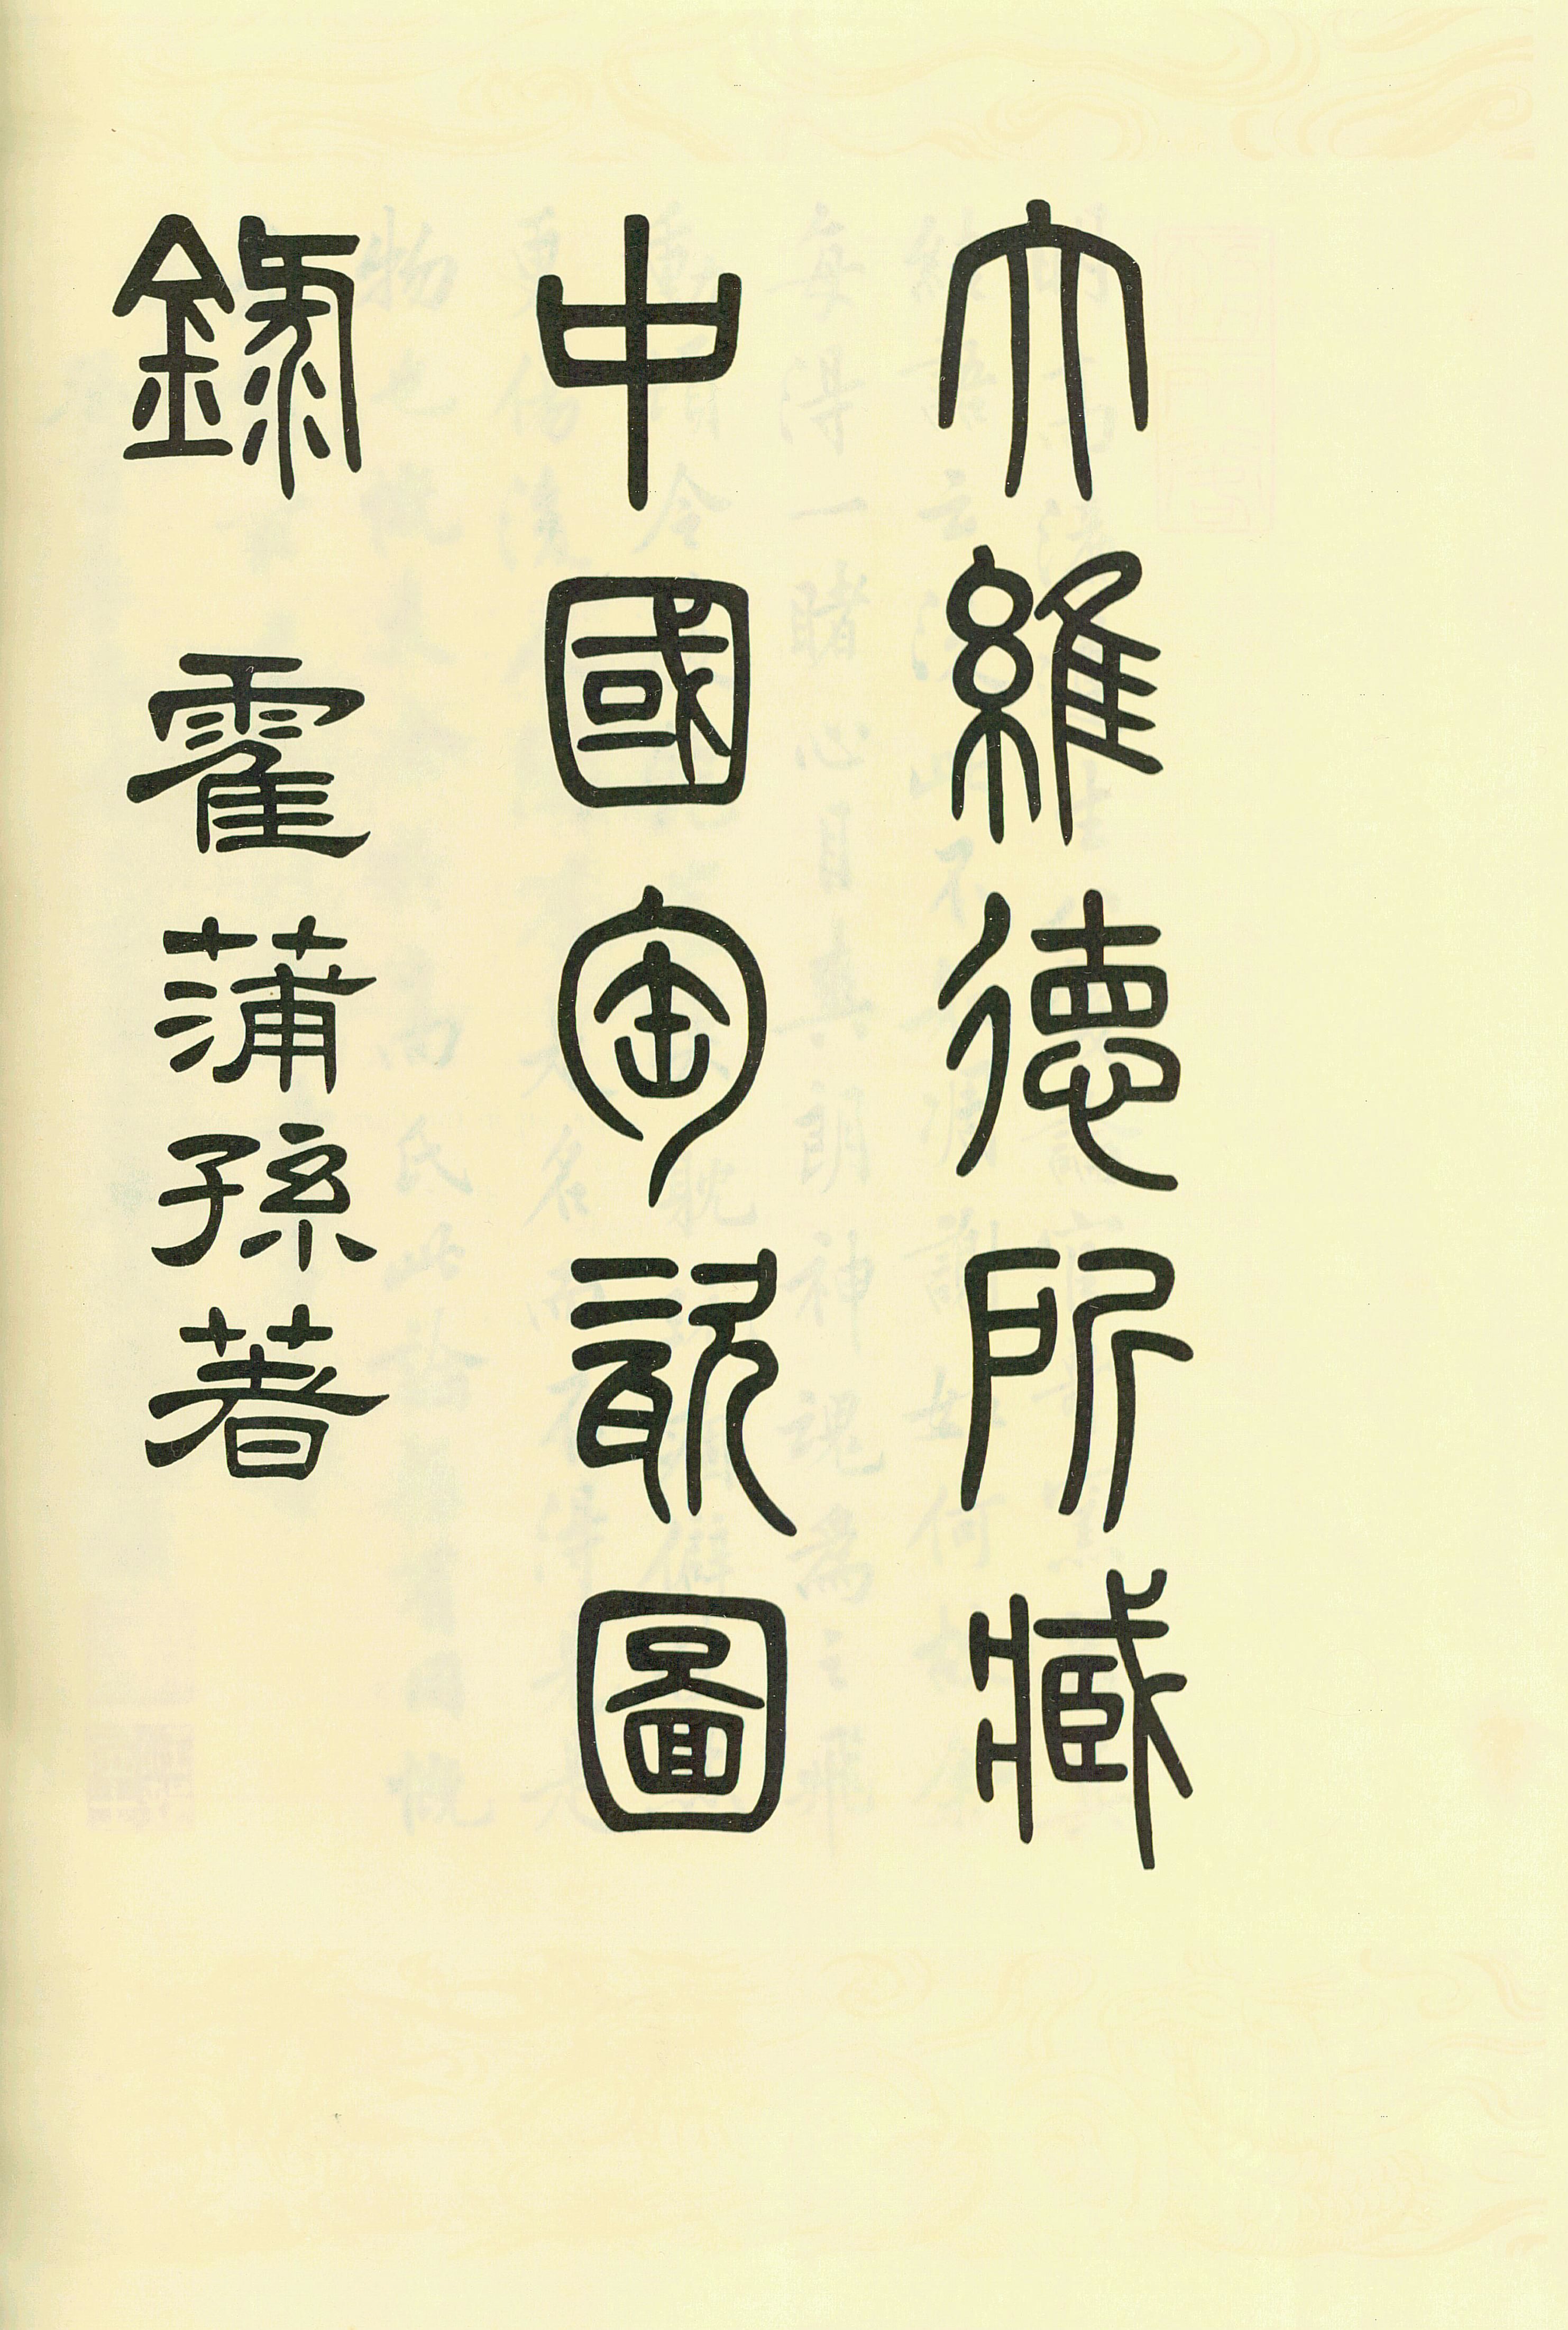 大維德所臧
中國匋瓷圖
錄 霍蒲孫著